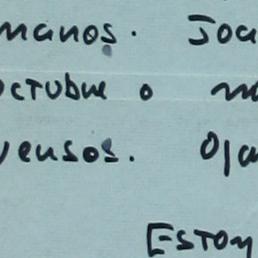 manos. Joa
octubre o
uensos. Oja
Estoy